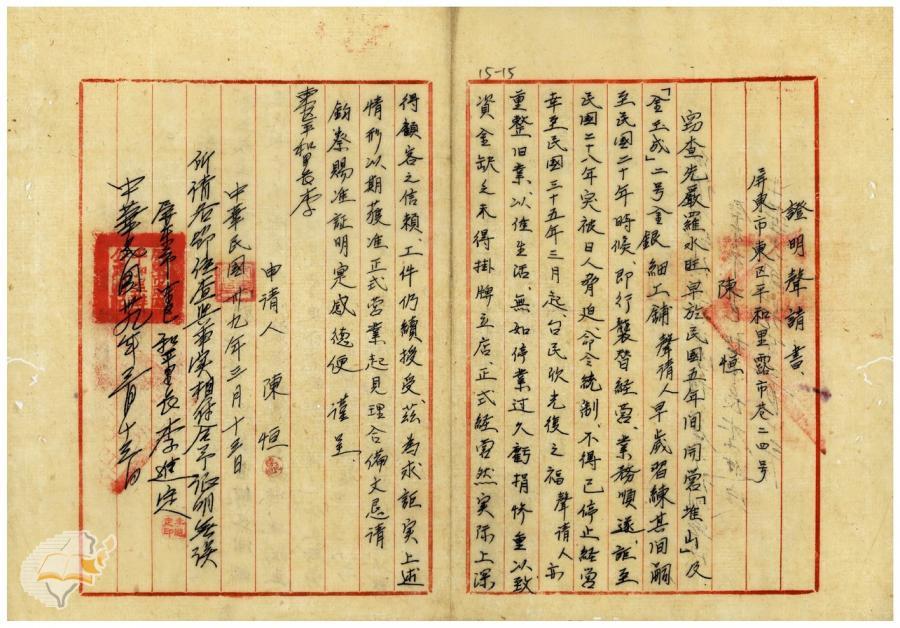 15-15
證明聲請書
屏東市東区平和里露市巷二四号
陳恒
窃查先嚴羅水旺早於民國五年間開営「堆山」及
「金玉成」二号金銀細工舖聲請人早歲習練其间嗣
至民國二十年時候、即行襲習経営、業務順遂、詎至
民國二十八年突被日人脅迫命令統制、不得已停止経営
幸至民國三十五年三月起、勻民欣光復之福聲請人亦
重整旧業、以使生活、無如停業过久虧捐惨重以致
資金缺乏未得掛牌立店、正式経営然実际上深
得顧客之信賴、工件仍續接受、茲為求証実上述
情形以期獲准正式営業起見理合備文恳请
鈞察賜准証明実感德便 謹呈
東区平和里長李
申请人 陳恒
中華民國卅九年三月十三日
所请各節経查與事実相符合予证明無误
屏東市東区平和里長李進定
中華民國卅九年三月十三日